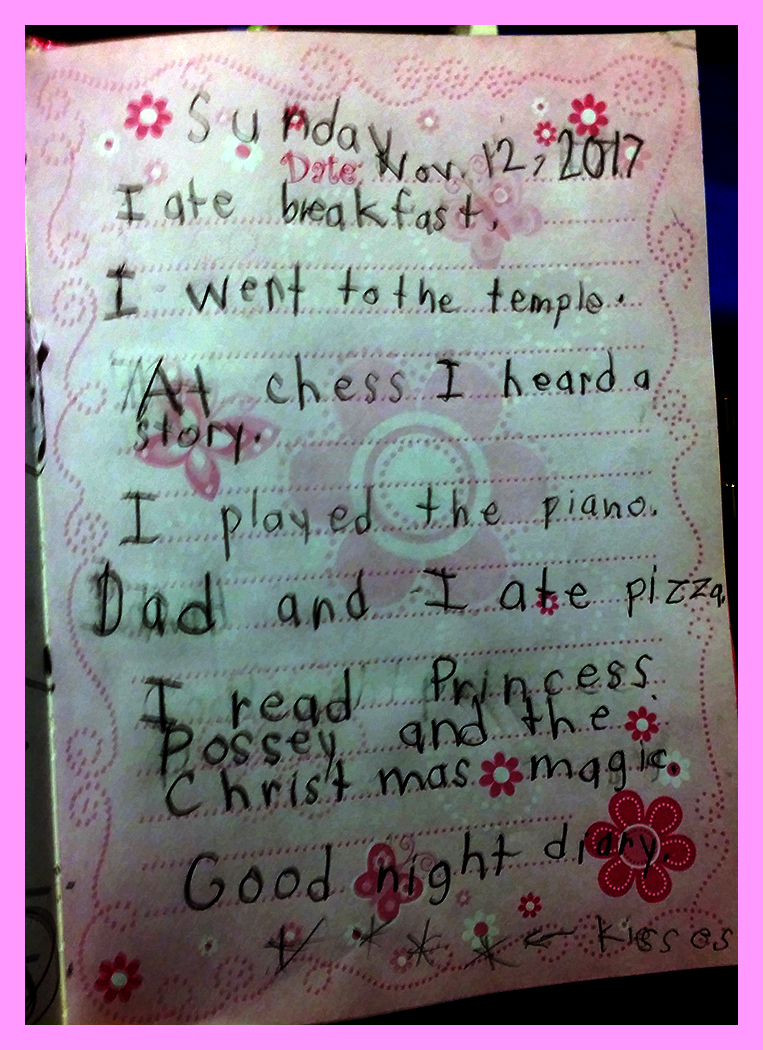 Sunday
Date: Nov. 12, 2017
I ate breakfast.
I went to the temple.
At chess I heard a
story.
I played the piano.
Dad and I ate pizza.
I read Princess
Possey and the
Christmas magic.
Good night diary.
← kisses